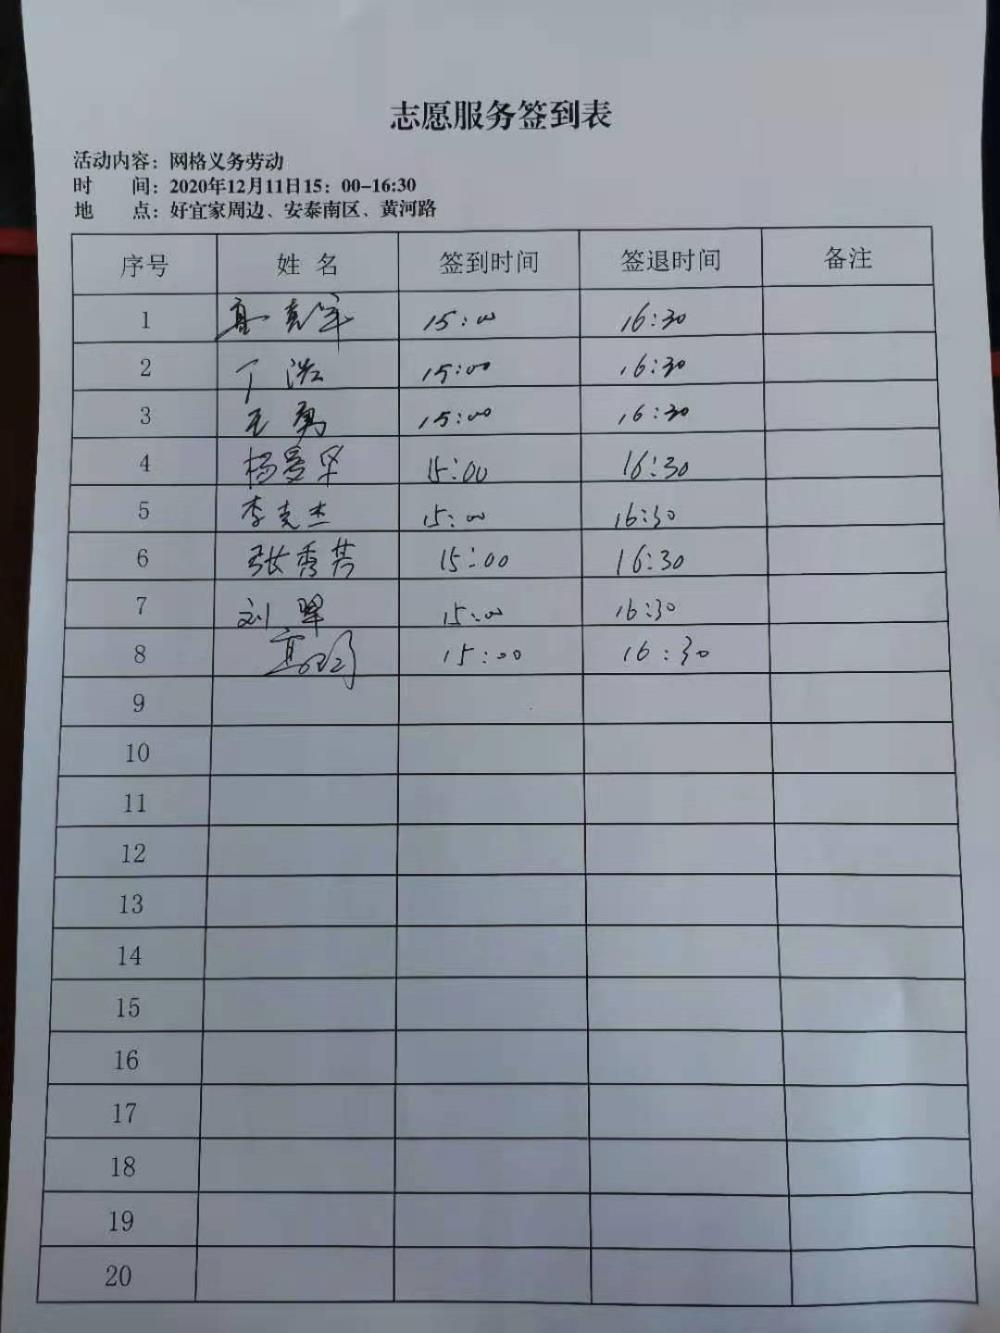 志愿服务签到表
活动内容：网格义务劳动
时　　间：2020年12月11日15：00-16:30
地　　点：好宜家周边、安泰南区、黄河路
序号 姓 名 签到时间 签退时间 备注
1 15:00 16:30
2 丁浩 15:00 16:30
3 王勇 15:00 16:30
4 杨爱华 15:00 16:30
5 李克杰 15:00 16:30
6 张秀芳 15:00 16:30
7 刘翠 15:00 16:30
8 15:00 16:30
9
10
11
12
13
14
15
16
17
18
19
20